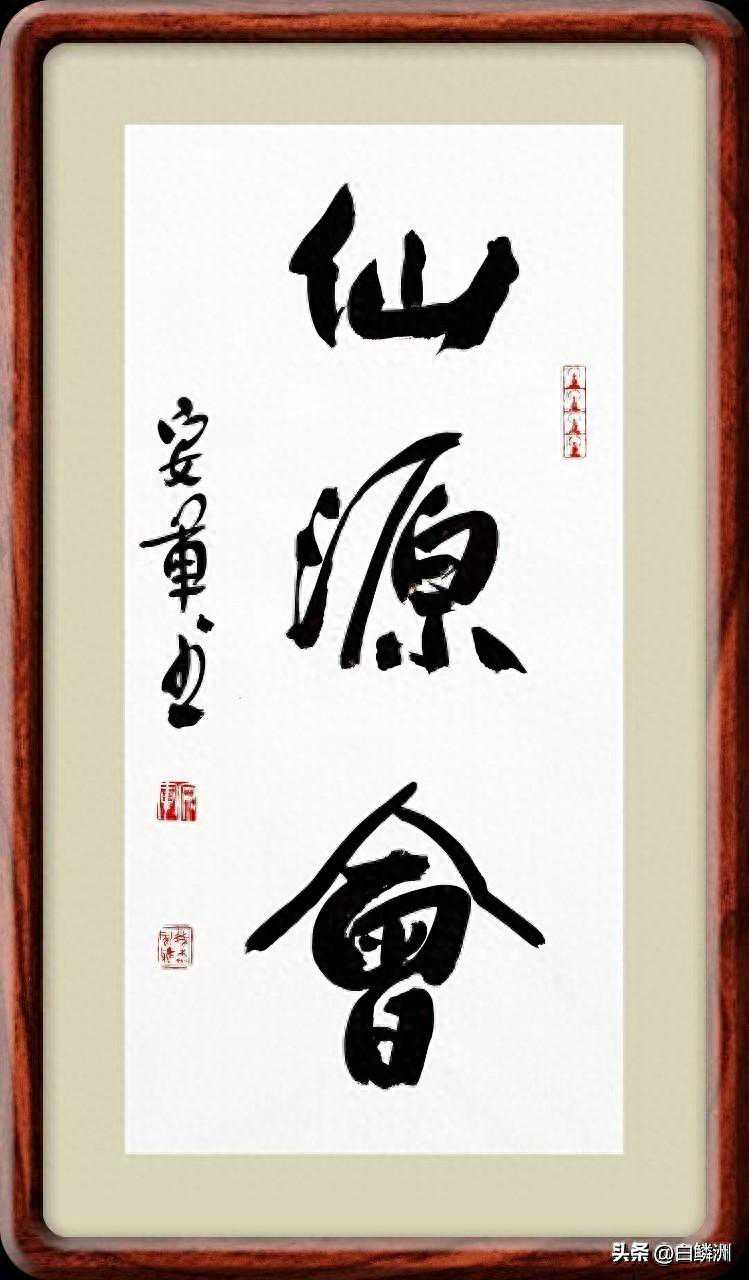 仙源會
晏華书
头条 @白鳞洲